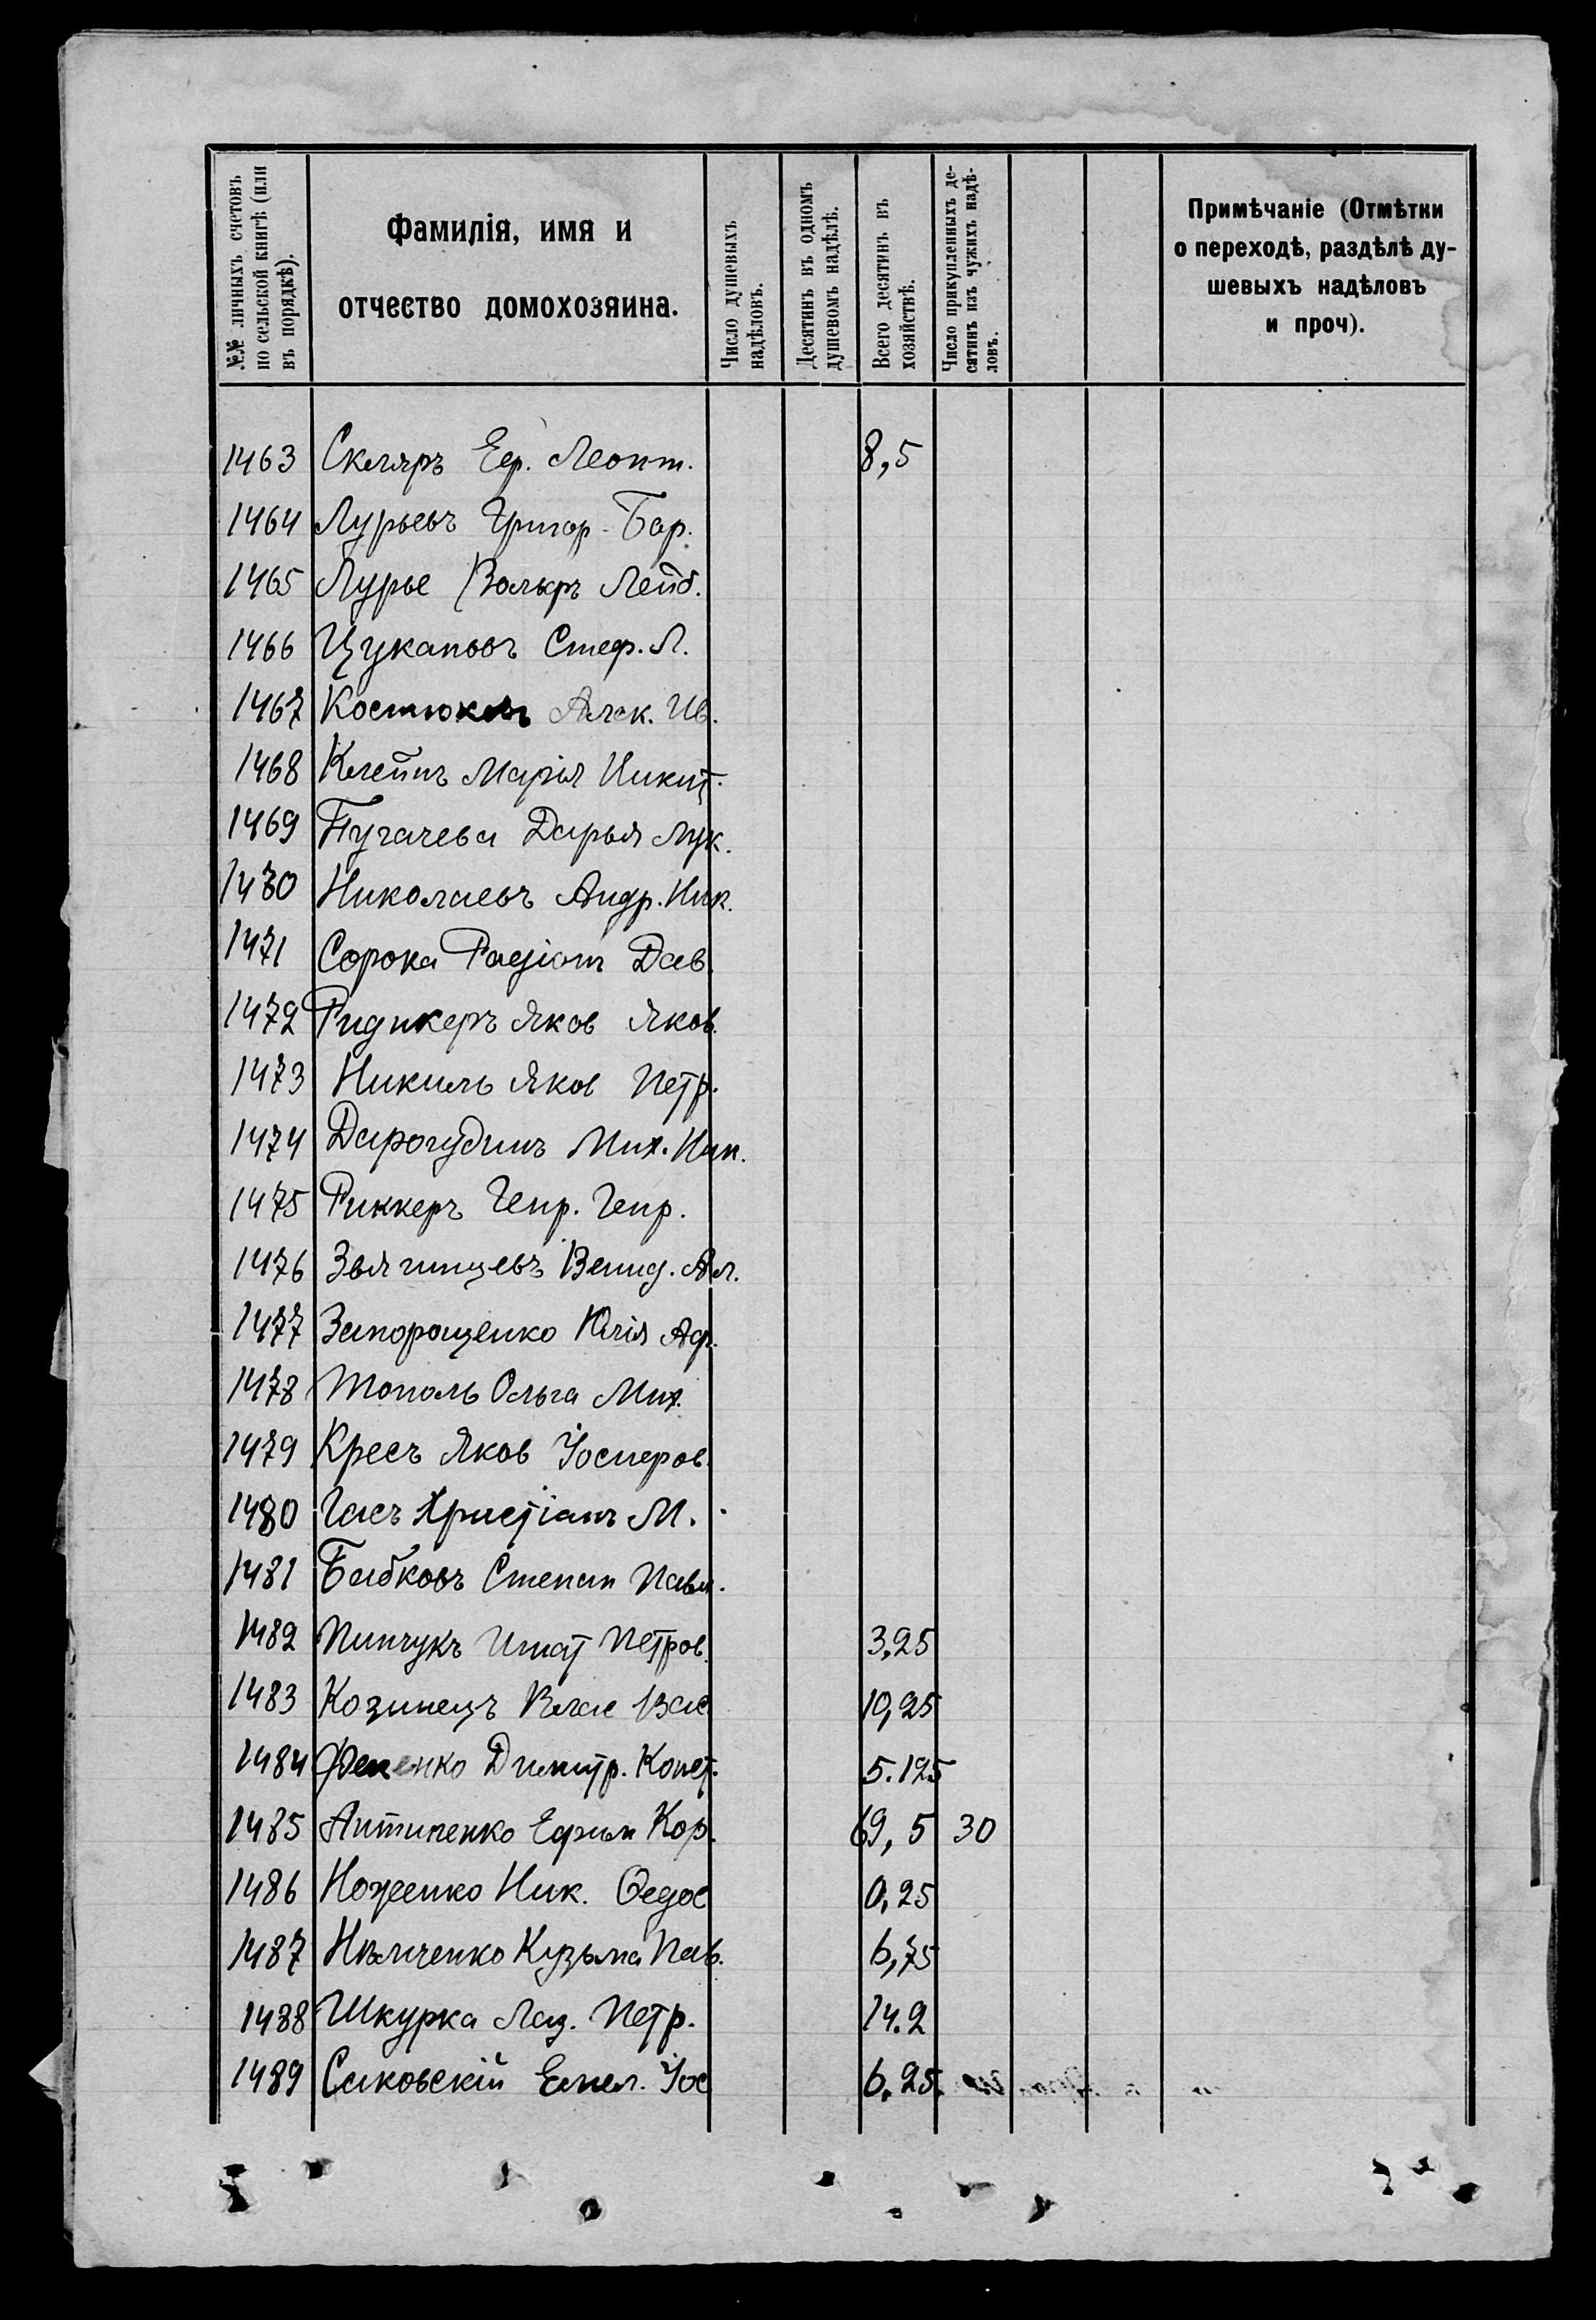 №№ личныхъ счетовъ
по сельской книгѣ (или
въ порядкѣ).
Фамилія, имя и
отчество домохозяина.
Число душевыхъ
надѣловъ.
Десятинъ въ одномъ
душевомъ надѣлѣ.
Всего десятинъ въ
хозяйствѣ.
Число прикупленныхъ де-
сятинъ изъ чужихъ надѣ-
ловъ.
Примѣчаніе (Отмѣтки
о переходѣ, раздѣлѣ ду-
шевыхъ надѣловъ
и проч).
1463 Скляръ Еф. Леонт. 8,5
1464 Лурьевъ Григор. Бор.
1465 Лурье Вольфъ Лейб.
1466 Цукановъ Стеф. Л.
1467 Алек. Ив.
1468 Клейнъ Марія Никит.
1469 Пугачева Дарья Лук.
1470 Николаевъ Андр. Ник.
1471 Сорока Дав.
1472 Ридикеръ Яков Яков.
1473 Никель Яков Петр.
1474 Мих. Ник.
1475 Риккеръ Генр. Генр.
1476 Звягинцевъ Венид. Ал.
1477 Запорощенко Юлія Аф.
1478 Тополь Ольга Мих.
1479 Кресъ Яков
1480 Гасъ Христіанъ М.
1481 Бабковъ Степан Павл.
1482 Пинчукъ Игнат Петров. 3,25
1483 Козинецъ Влас Вас. 10,25
1484 Димитр. Конст. 5.125
1485 Антипенко Ефим Кор. 69,5 30
1486 Ноженко Ник. Ѳедос 0,25
1487 Нѣмченко Кузьма Пав. 6,75
1488 Шкурка Лаз. Петр. 14.2
1489 Саковскій Емел. Іос 6.25.